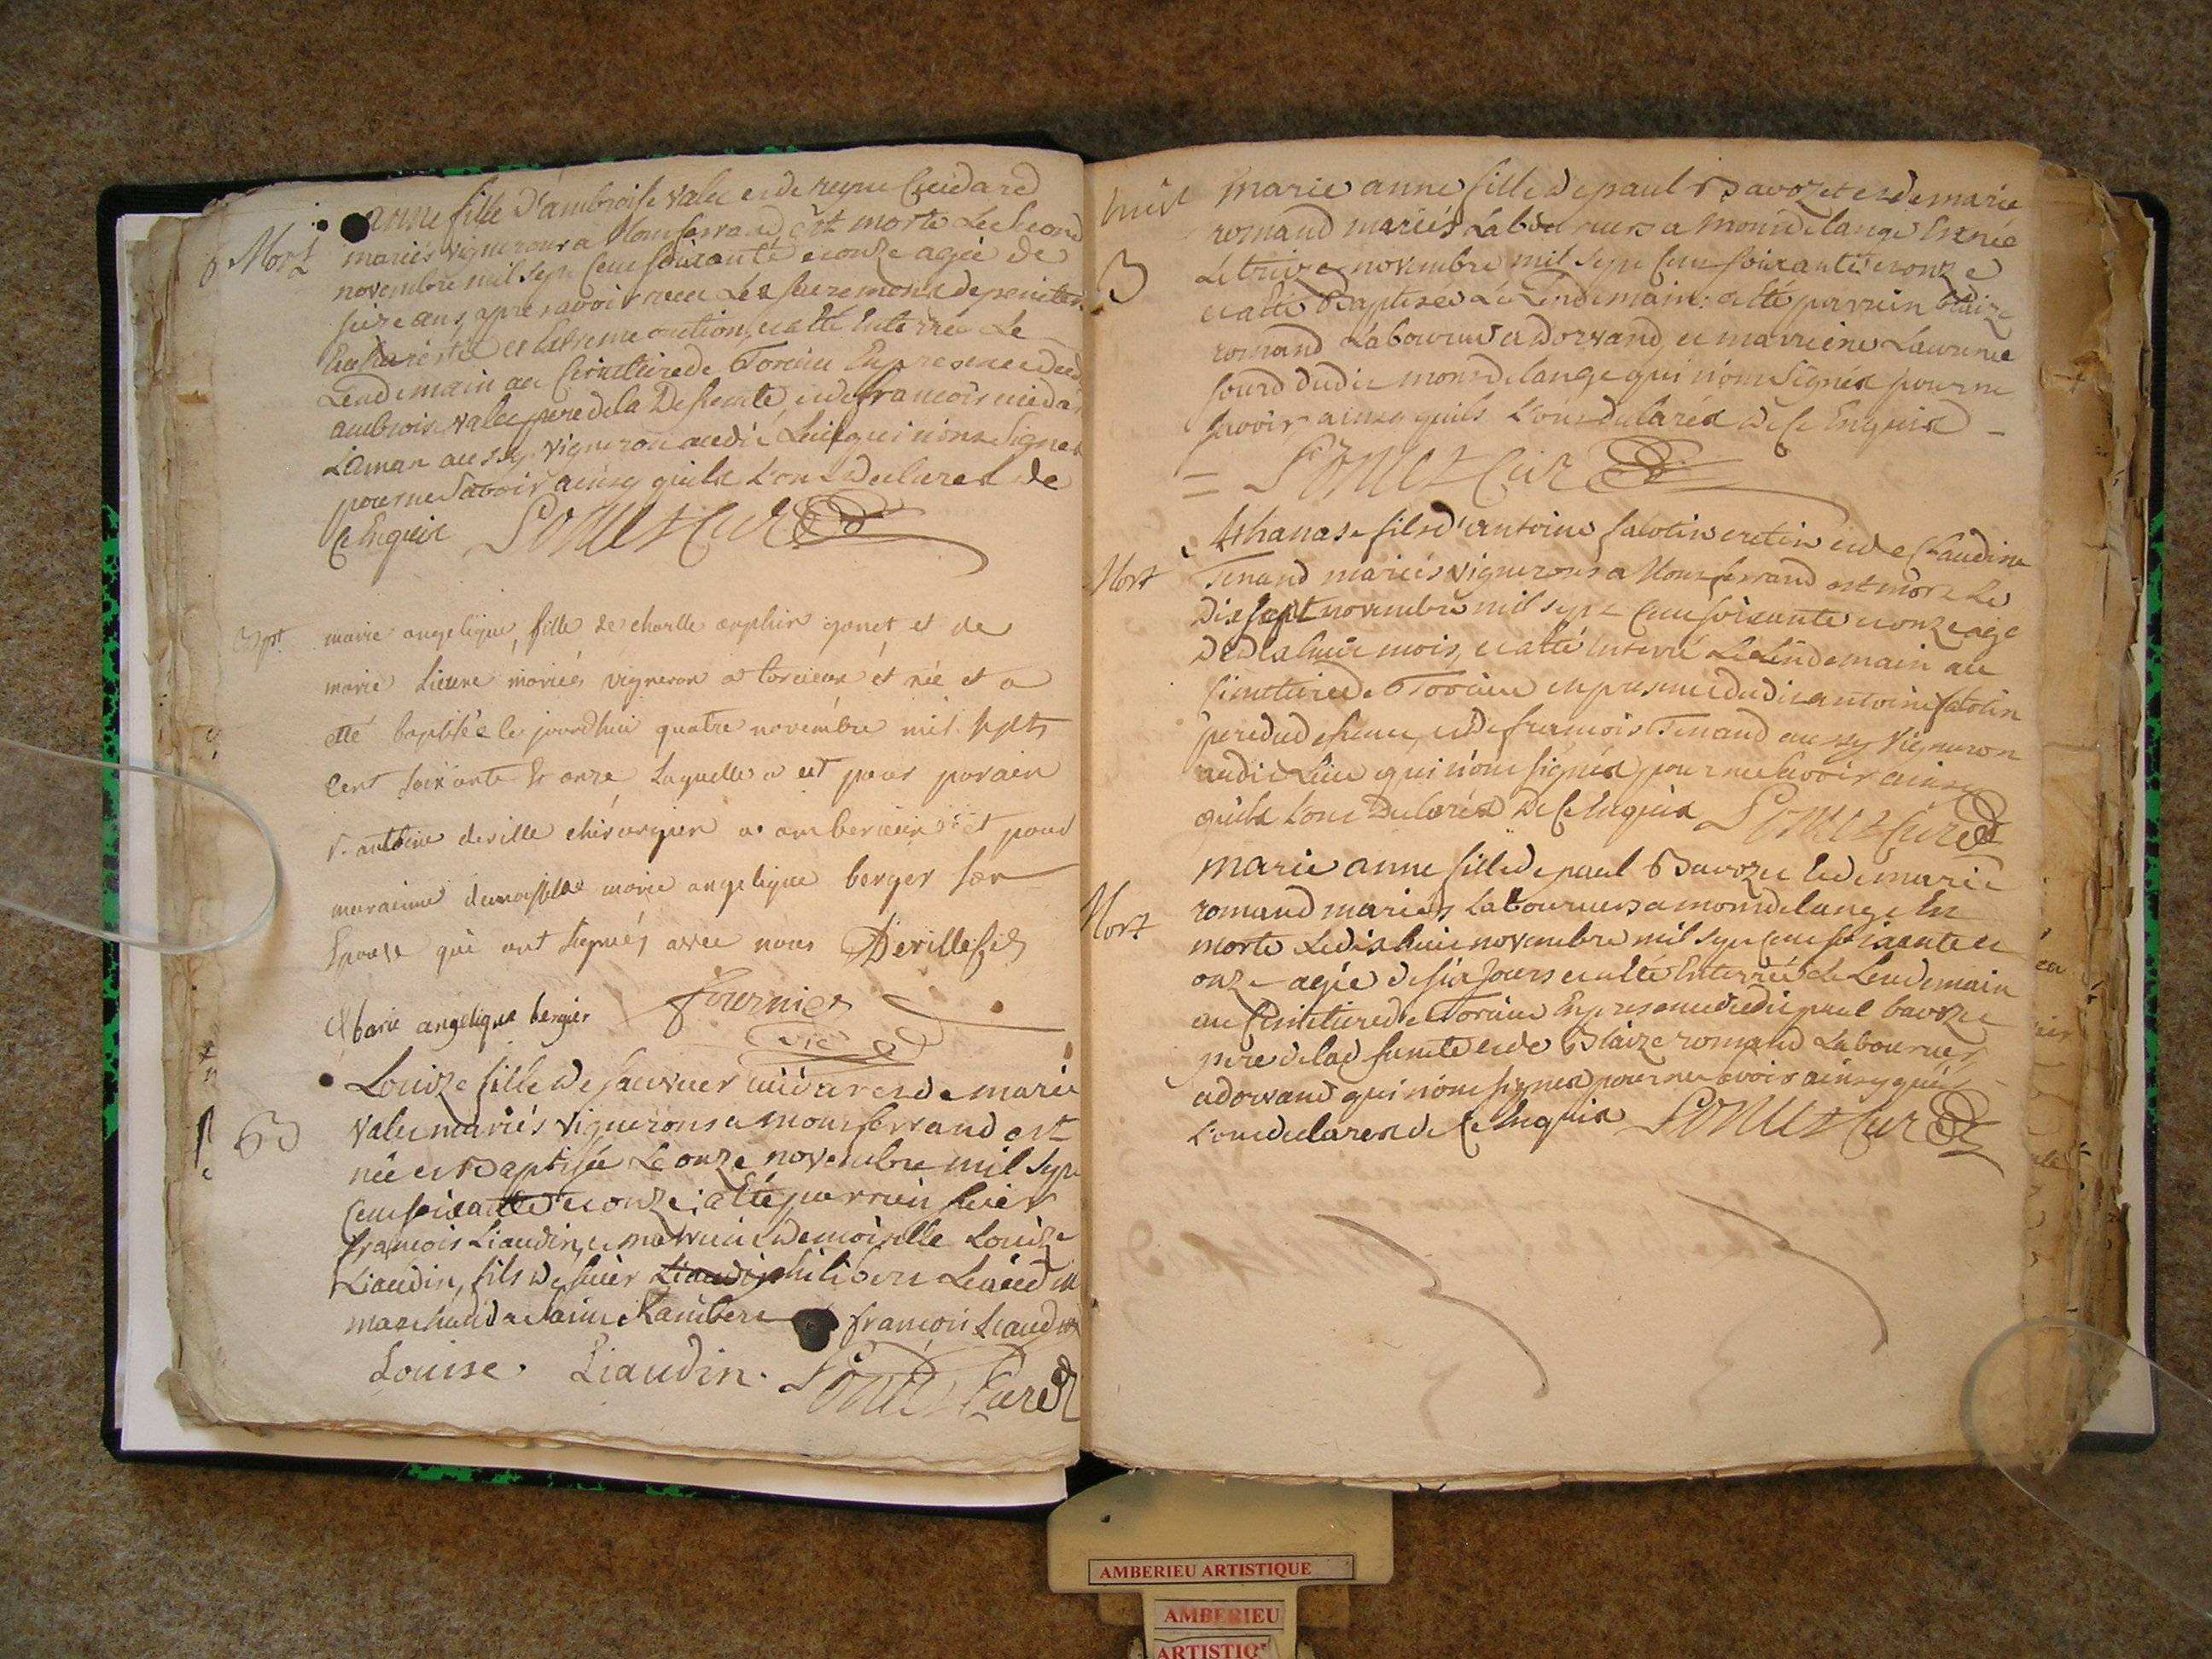 Mort
anne fille d'ambroise valee et de reyne
mariés vignerons a Monferrand est morte Le second
novembre mil sept cent soixante et onze agée de
seize ans, apres avoir receu Les sacremons de peniten
Eucharistie et Extreme onction, et a été Enterrée Le
Lendemain au Cimetiere de Torcieu En presence dud
ambroise valee pere de la Defunte et de francois
aussy vigneron audit Lieu qui n'ont Signes
pour ne Savoir ainsy quils L'ont Declares de
Ce Enquis Sonet Curé
Bapt.
marie angelique fille de charlle gonet et de
marie mariés vigneron a torcieux et née et a
etté baptisée le jourdhui quatre novembre mil sept
cent soixante et onze Laquelle a eut pour parain
sr antoine deville chirurgien a amberieux et pour
maraine demoiselle marie angelique berger son
Epouse qui ont signés avec nous Deville fils
Marie angelique bergier fournier
vic
B
Louize fille de et de marie
valee mariés vignerons a monferrand est
née et Baptisée Le onze novembre mil sept
cent soixante et onze; a été parrein sieur
francois Liaudin, et marreine demoiselle Louize
Liaudin, fils de sieur Liaudin philibert Liaudin
marchand a saint Rambert francois Liaudin
Louise. Liaudin. Sonet Curé
B
marie anne fille de paul Bavozet et de marie
romand mariés Laboureurs a montdelange Est née
Le treize novembre mil sept cent soixante et onze
et a été Baptisée Le Lendemain: a été parrein blaize
romand Laboureur a Dorvand, et marreine Laurence
sourd dudit montdelange qui n'ont Signés pour ne
savoir, ainsy quils L'ont declarés de Ce Enquis
Sonet Curé
Mort
Athanase fils d'antoine et de Claudine
Tenand mariés vignerons a Monferrand est mort Le
Dix sept novembre mil sept cent soixante et onze agé
de mois, et a été Enterré Le Lendemain au
Cimetiere de Torcieu en presence dudit antoine
pere du defunt, et de francois Tenand aussy vigneron
audit Lieu qui n'ont signés pour ne Savoir ainsy
quils Lont Declarés De Ce Enquis Sonet Curé
Mort
marie anne fille de paul Bavozet et de marie
romand mariés Laboureurs a montdelange Est
morte Le dix huit novembre mil sept cent soixante et
onze agée de six Jours et a été Enterrée Le Lendemain
au Cimetiere de Torcieu En presence dudit paul bavozet
pere de la defunte et de Blaize romand Laboureur
a dorvand qui n'ont signés pour ne savoir ainsy quils
L'ont declares de Ce Enquis Sonet Curé
AMBERIEU ARTISTIQUE
AMBERIEU
ARTISTIQ